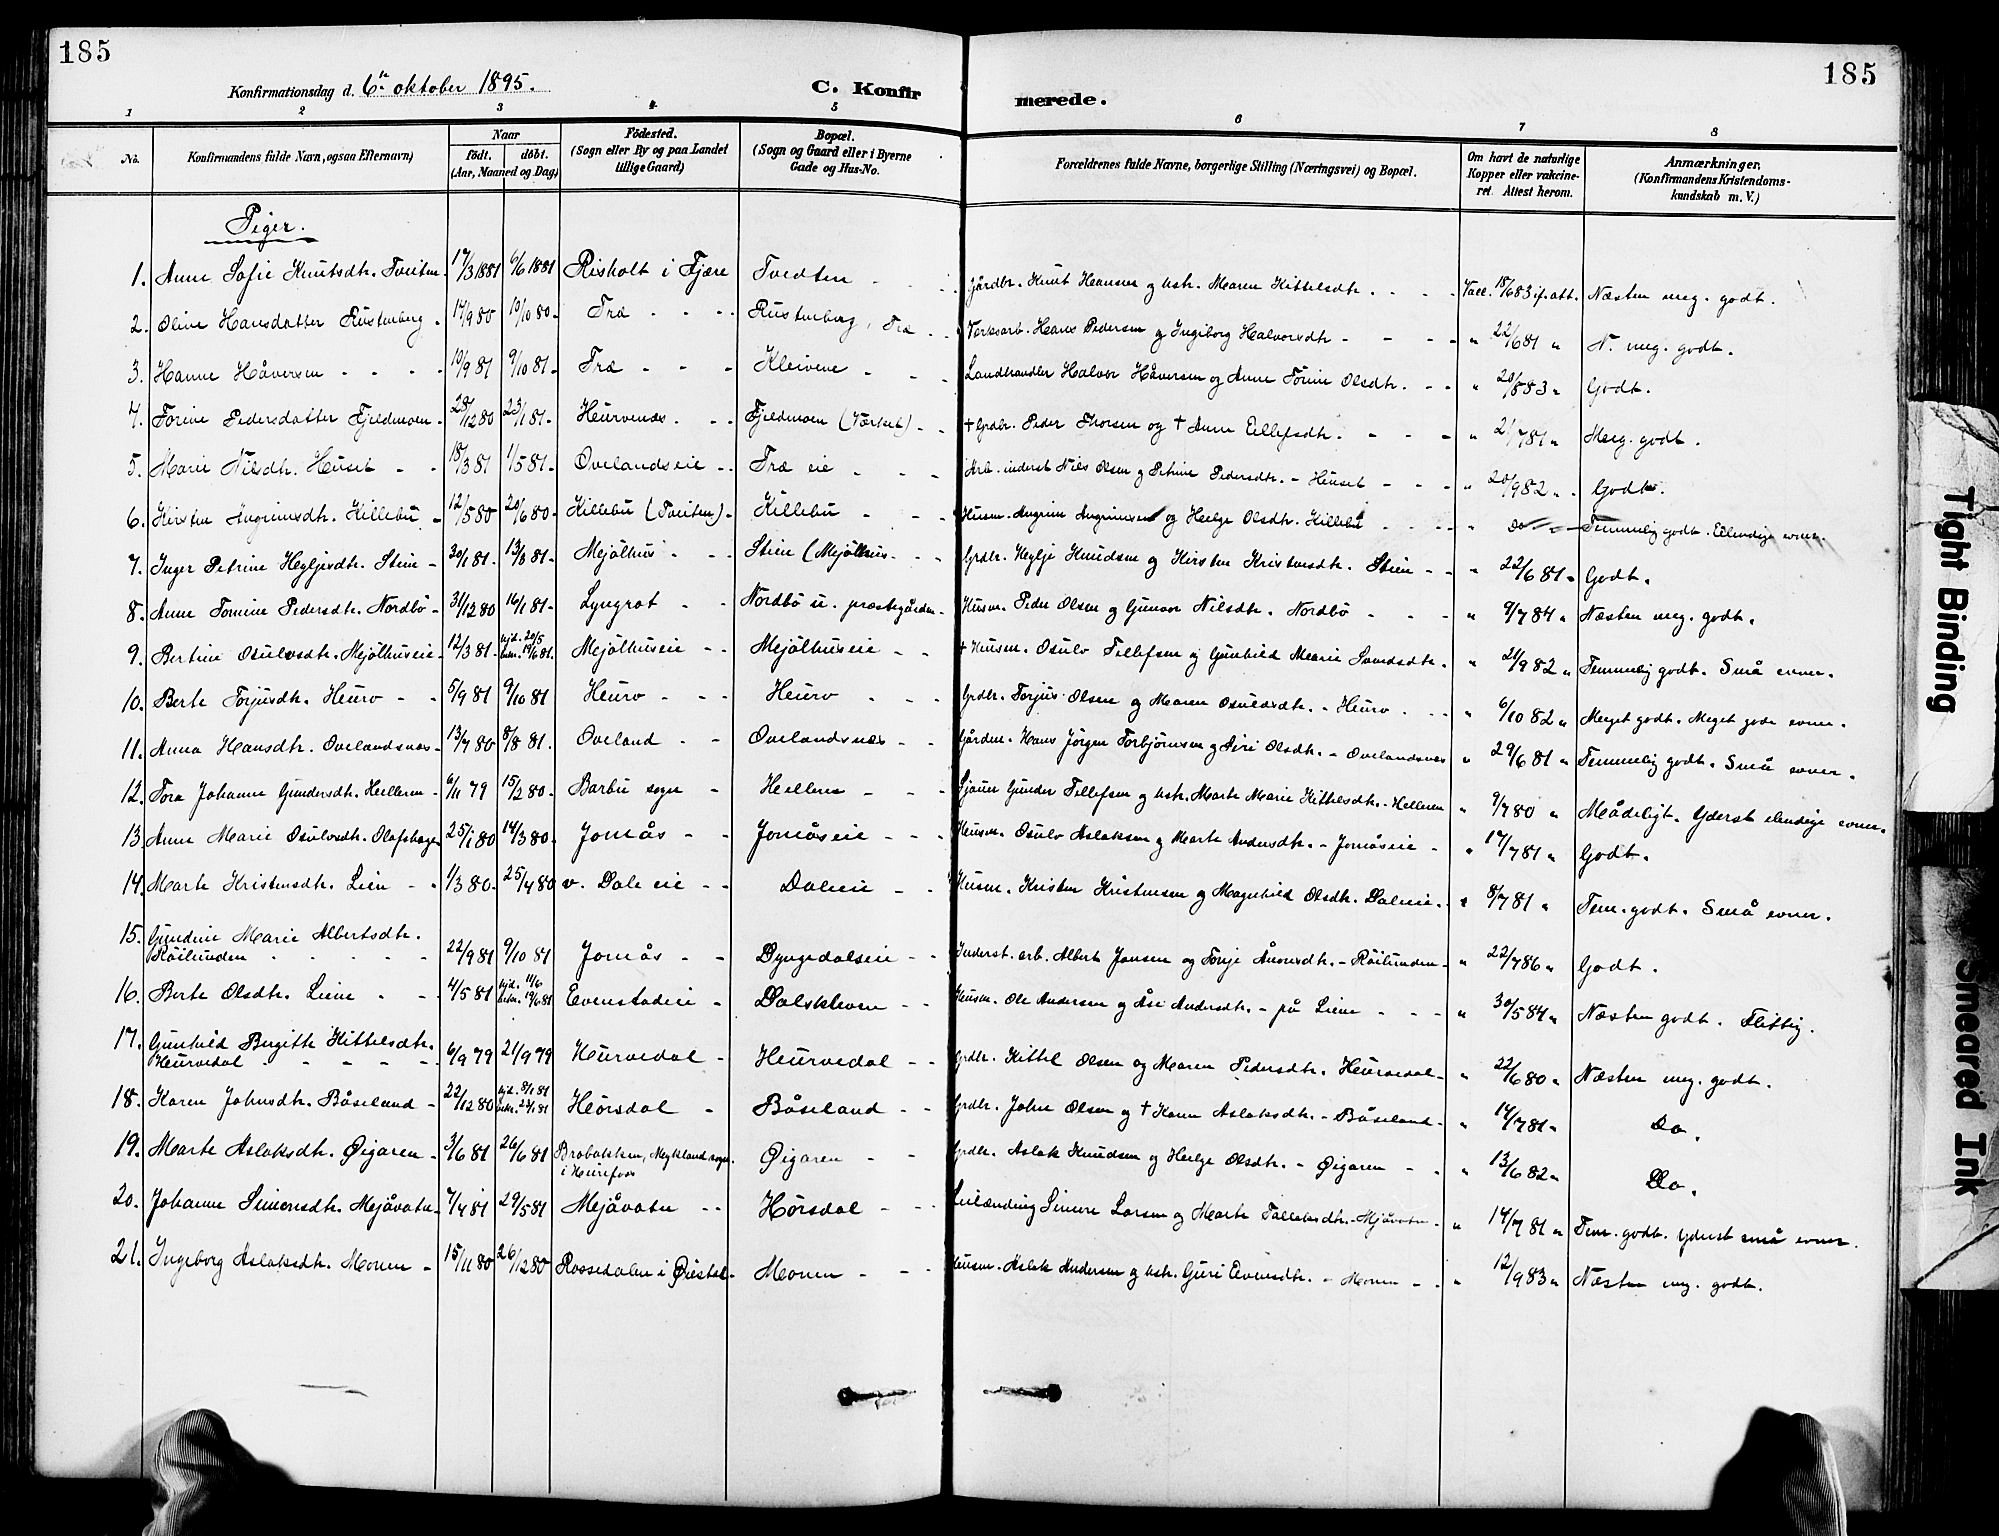 185
185
Konfirmationsdag d. 6te oktober 1895.
C. Konfirmerede.
1 2 3 4 5 6 7 8
No.
Konfirmandens fulde Navn, ogsaa Efternavn)
Naar
født. døbt.
(Aar, Maaned og Dag)
Fødested.
(Sogn eller By og paa Landet
tillige Gaard)
Bopæl.
(Sogn og Gaard eller i Byerne
Gade og Hus-No.
Forældrenes fulde Navne, borgerlige Stilling (Næringsvei) og Bopæl.
Om havt de naturlige
Kopper eller vakcine-
ret. Attest herom.
Anmærkninger.
(Konfirmandens Kristendoms-
kundskab m. V.)
Piger.
1. Anne Sofie Knutsdtr. Tveiten 17/3 1881 6/6 1881 Risholt i Fjære Tvedten Gårdbr. Knut Hansen og hstr. Maren Kittelsdtr. Vacc. 18/6 83 if. att. Næsten meg. godt.
2. Olive Hansdatter Rustenberg 17/9 80 10/10 80 Træ Rustenberg, Træ Verksarb. Hans Pedersen og Ingeborg Halvorsdtr. " 22/6 81 " N. meg. godt.
3. Hanne Håversen 10/9 81 9/10 81 Træ Kleivene Landhandler Halvor Håversen og Anne Torine Olsdtr. " 20/8 83 " Godt.
4. Torine Pedersdatter Fjeldmoen 28/12 80 23/1 81 Heurvenæs Fjeldmoen (Værket) † Grdbr. Peder Thorsen og † Anne Ellefsdtr. " 21/7 81 " Meg. godt.
5. Marie Nilsdtr. Huset 18/3 81 1/5 81 Ovelandseie Træ eie Arb. inderst Nils Olsen og Petrine Pedersdtr. Huset " 20/9 82 " Godt.
6. Kirsten Angrimsdtr. Killebu 12/5 80 20/6 80 Killebu (Tveiten) Killebu Husm. Angrim Angrimsen og Helge Olsdtr. Killebu " Do Temmelig godt. Elendige evner.
7. Inger Petrine Heljesdtr. Stien 30/1 81 13/3 81 Mejølhus Stien (Mejølhus Grdbr. Helje Knudsen og Kirsten Kristensdtr. Stien " 22/6 81 " Godt.
8. Anne Tomine Pedersdtr. Nordbø 31/12 80 16/1 81 Lyngrot Nordbø u. prestegården Husm. Peder Olsen og Gunvor Nilsdtr. Nordbø " 9/7 84 " Næsten meg. godt.
9. Bertine Osulvsdtr. Mejølhuseie 12/3 81 hjd. 20/5 bekr. 19/6 81 Mejølhuseie Mejølhuseie † Husm. Osulv Tellefsen og Gunhild Marie Samdsdtr. " 21/9 82 " Temmelig godt. Små evner.
10. Berte Torjusdtr. Heurv 5/9 81 9/10 81 Heurv Heurv Grdbr. Torjus Olsen og Maren Osulvsdtr. Heurv " 6/10 82 " Meget godt. Meget gode evner.
11. Anna Hansdtr. Ovelandsnæs 13/7 80 8/8 81. Oveland Ovelandsnæs Gårdm. Hans Jørgen Torbjørnsen og Siri Olsdtr. Ovelandsnæs " 29/6 81 " Temmelig godt. Små evner.
12. Tora Johanne Gundersdtr. Helleren 6/11 79 15/2 80 Barbu sogn Helleren Sjauer Gunder Tellefsen og hstr. Marte Marie Kittelsdtr. Helleren " 9/7 80 " Mådeligt. Yderst elendige evner.
13. Anne Marie Osulvsdtr. Olafshagen 25/1 80 14/3 80 Jomås Jomåseie Husm. Osulv Aslaksen og Marte Andersdtr. Jomåseie " 17/7 81 " Godt.
14. Marte Kristensdtr. Lien 1/3 80 25/4 80 v. Dale eie Daleeie Husm. Kristen Kristensen og Magnhild Olsdtr. Daleeie " 8/7 81 " Tem. godt. Små evner.
15. Gundine Marie Albertsdtr.
Røilunden 22/9 81 9/10 81 Jomås Dyngedalseie Inderst. arb. Albert Jansen og Torje Ånonsdtr. Røilunden " 22/7 86 " Godt.
16. Berte Olsdtr. Liene 4/5 81 hjd. 11/6 bekr. 19/6 81 Evenstadeie Dalskleven Husm. Ole Andersen og Åse Andersdtr. på Liene " 30/5 84 " Næsten godt. Flittig.
17. Gunhild Birgitte Kittelsdtr.
Heurvedal 6/9 79 21/9 79 Heurvedal Heurvedal Grdbr. Kittel Olsen og Maren Pedersdtr. Heurvedal " 22/6 80 " Næsten meg. godt.
18. Karen Johnsdtr. Båseland 22/12 80 hjd. 8/1 81 bekr. 27/1 81 Hørsdal Båseland Grdbr. John Olsen og † Karen Aslaksdtr. Båseland " 14/7 81 " Do.
19. Marte Aslaksdtr. Øigaren 3/6 81 26/6 81 Brobakken, Mykland sogn
i Herefoss Øigaren Grdbr. Aslak Knudsen og Helge Olsdtr. Øigaren " 13/6 82 " Do.
20. Johanne Simensdtr. Mejåvatn 7/4 81 29/5 81 Mejåvatn Hørsdal Leilænding Simen Larsen og Marte Tallaksdtr. Mjåvatn " 14/7 81 " Tem. godt. Yderst små evner.
21. Ingeborg Aslaksdtr. Monen 15/11 80 26/12 80 Rossedalen i Øiestad Monen Husm. Aslak Andersen og hstr. Guri Evensdtr. Monen " 12/9 83 " Næsten meg. godt.
Tight Binding
Smeared Ink